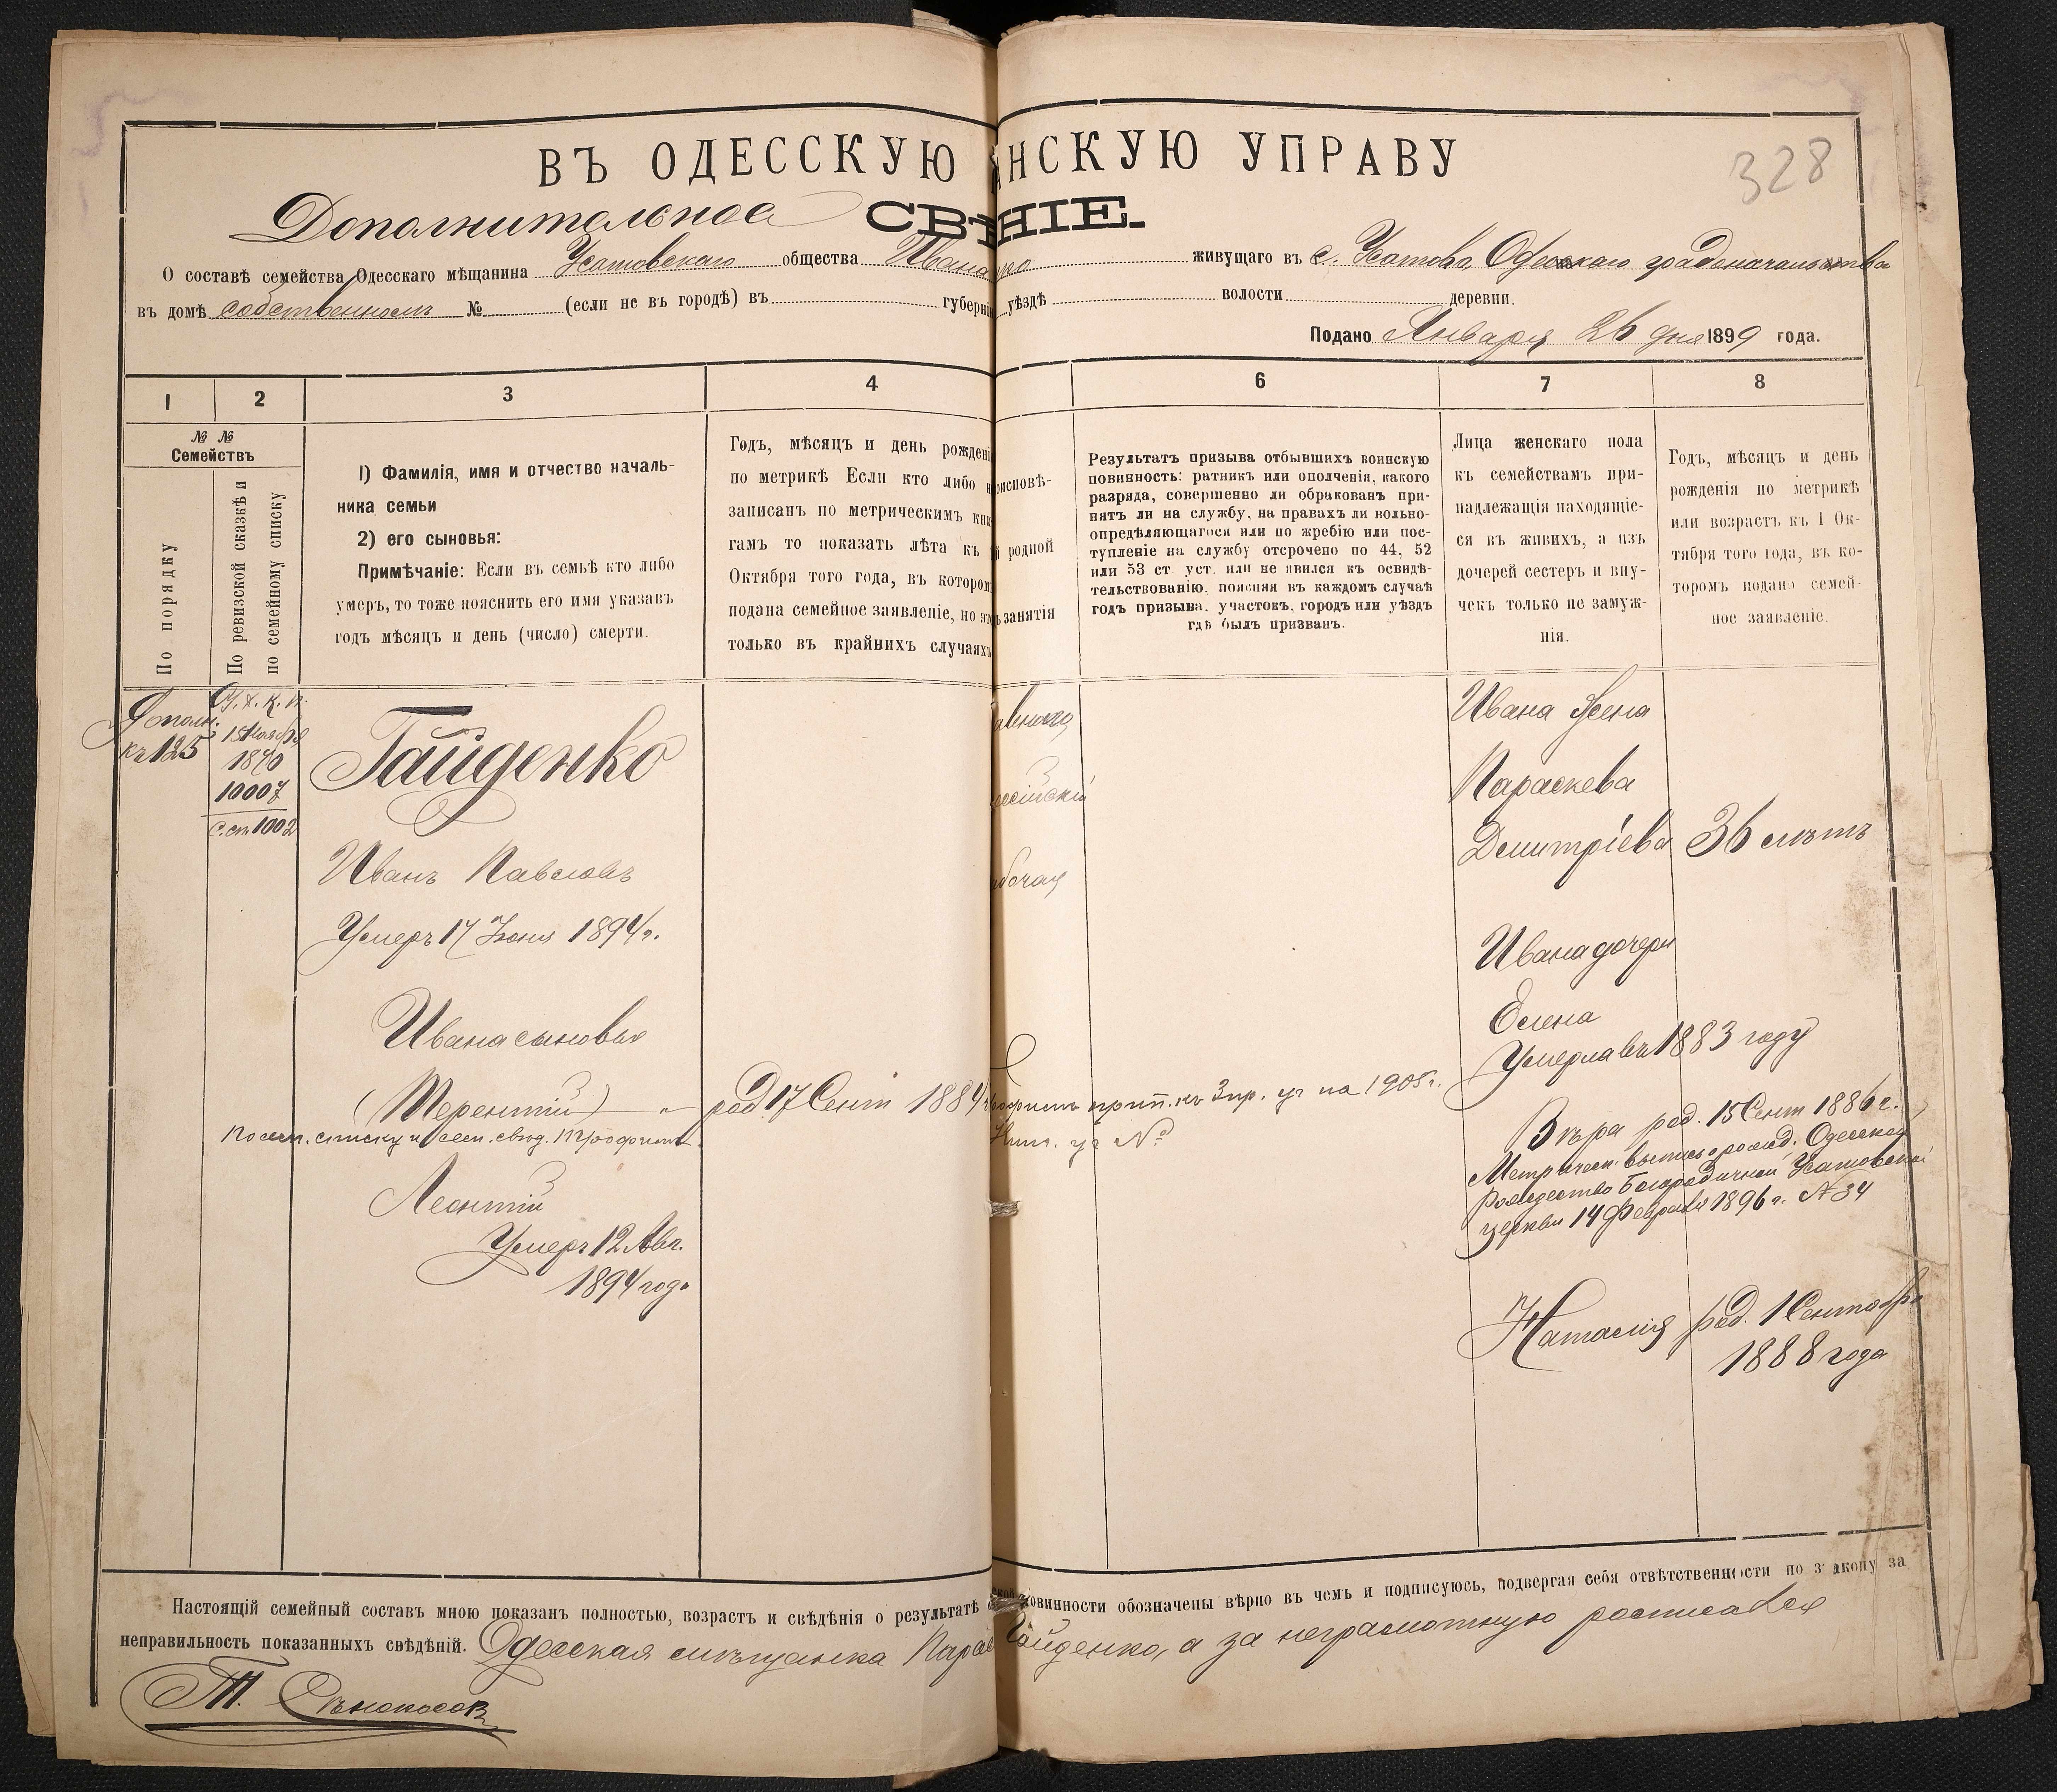 328
ВЪ ОДЕССКУЮ НСКУЮ УПРАВУ
Дополнительное СВѢНІЕ.
О составѣ семейства Одесскаго мѣщанина Усатовскаго общества Ивана живущаго въ с. Усатово, Одесскаго градоначальства
въ домѣ собственномъ № (если не въ городѣ) въ губерні уѣздѣ волости деревни.
Подано Января 26 дня 1899 года.
1 2 3 4 6 7 8
№ №
Семействъ
По порядку
По ревизской сказкѣ и
по семейному списку
1) Фамилія, имя и отчество началь-
ника семьи
2) его сыновья:
Примѣчаніе: Если въ семьѣ кто либо
умеръ, то тоже пояснить его имя указавъ
годъ мѣсяцъ и день (число) смерти.
Годъ, мѣсяцъ и день рожденi
по метрикѣ Если кто либо н
записанъ по метрическимъ кни
гамъ то показать лѣта къ
Октября того года, въ котором
подана семейное заявленіе, но эт
только въ крайнихъ случаяхъ
оисповѣ-
родной
занятія
Результатъ призыва отбывшихъ воинскую
повинность: ратникъ или ополченія, какого
разряда, совершенно ли обракованъ при-
нятъ ли на службу, на правахъ ли вольно-
опредѣляющагося или по жребію или пос-
тупленіе на службу отсрочено по 44, 52
или 53 ст. уст. или не явился къ освидѣ-
тельствованію, поясняя въ каждомъ случаѣ
годъ призыва. участокъ, городъ или уѣздъ
гдѣ былъ призванъ.
Лица женскаго пола
къ семействамъ при-
надлежащія находящіе-
ся въ живихъ, а изъ
дочерей сестеръ и вну-
чекъ только не замуж-
нія.
Годъ, мѣсяцъ и день
рожденія по метрикѣ
или возрастъ къ 1 Ок-
тября того года, въ ко-
торомъ подано семей-
ное заявленіе.
Дополн.
къ 125
15 Ноября
1870
10007
с.сп. 1002
Гайденко
Иванъ Павловъ
Умеръ 17 Іюня 1894 г.
Ивана сыновья
(Терентій) род. 17 Сент 1884
по сем. списку и сем. свѣд. Трофимъ
Трофимъ прип. къ 3 пр. уч на 1905 г.
уч №
Леонтій
Умеръ 12 Авг.
1894 года
авнаго
ссійскій
абочая
Ивана жена
Параскева
Дмитріева 36 лѣтъ
Ивана дочери
Елена
Умерла въ 1883 году
Вѣра род. 15 Сент 1886 г.
Метрическ. выпись о рожд. Одесской
Рождество Богородичной Усатовской
церкви 14 Февраля 1896 г. № 34
Наталія род. 1 Сентября
1888 года
Настоящій семейный составъ мною показанъ полностью, возрастъ и свѣдѣнія о результатѣ повинности обозначены вѣрно въ чемъ и подписуюсь, подвергая себя отвѣтственности по закону за
неправильность показанныхъ свѣдѣній. Одесская мѣщанка Парас Гайденко, а за неграмотную росписался
Т. Сѣнокосовъ